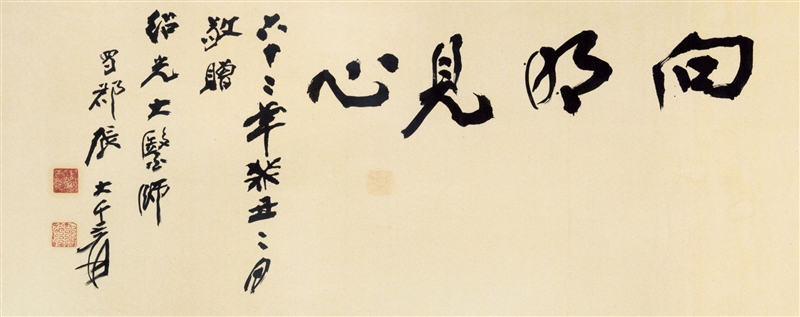 向明見心
六十二年癸丑二月
敬贈
紹光大醫師
蜀郡張大千爰